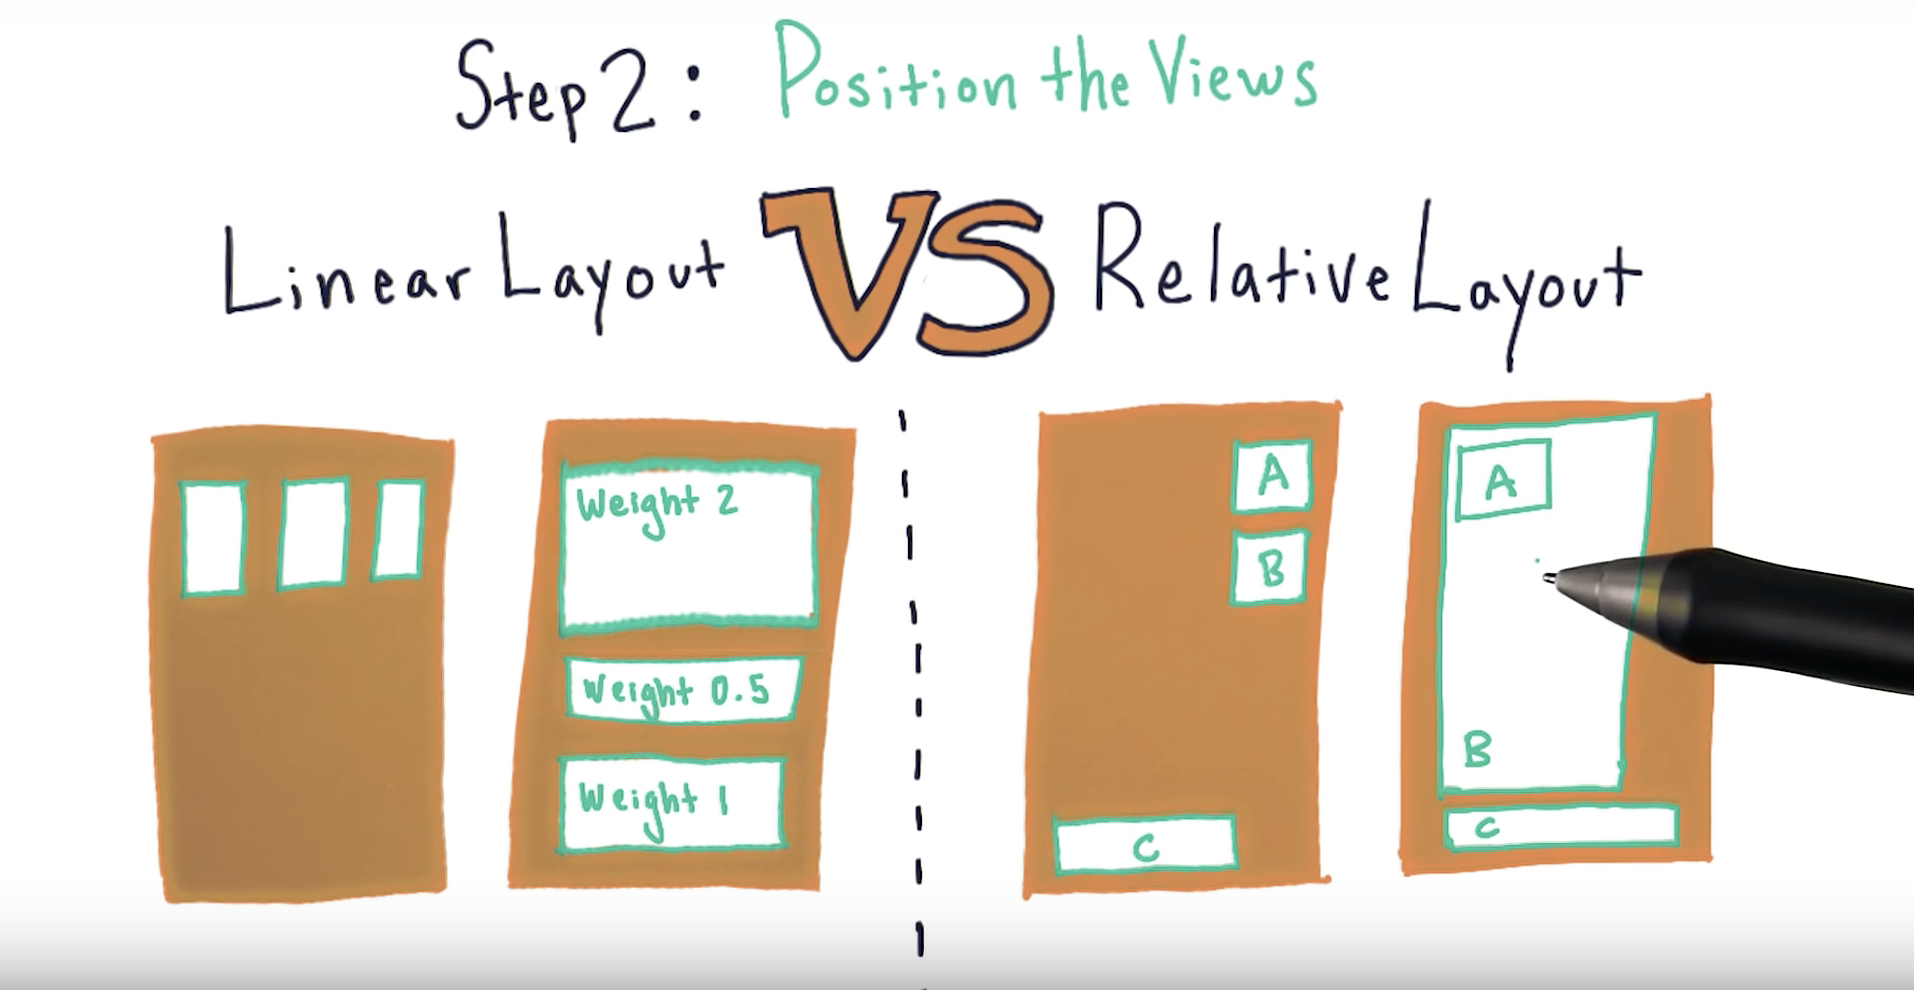 Step 2: Position the Views
LinearLayout VS RelativeLayout
Weight 2
Weight 0.5
Weight 1
A
B
C
A
B
C